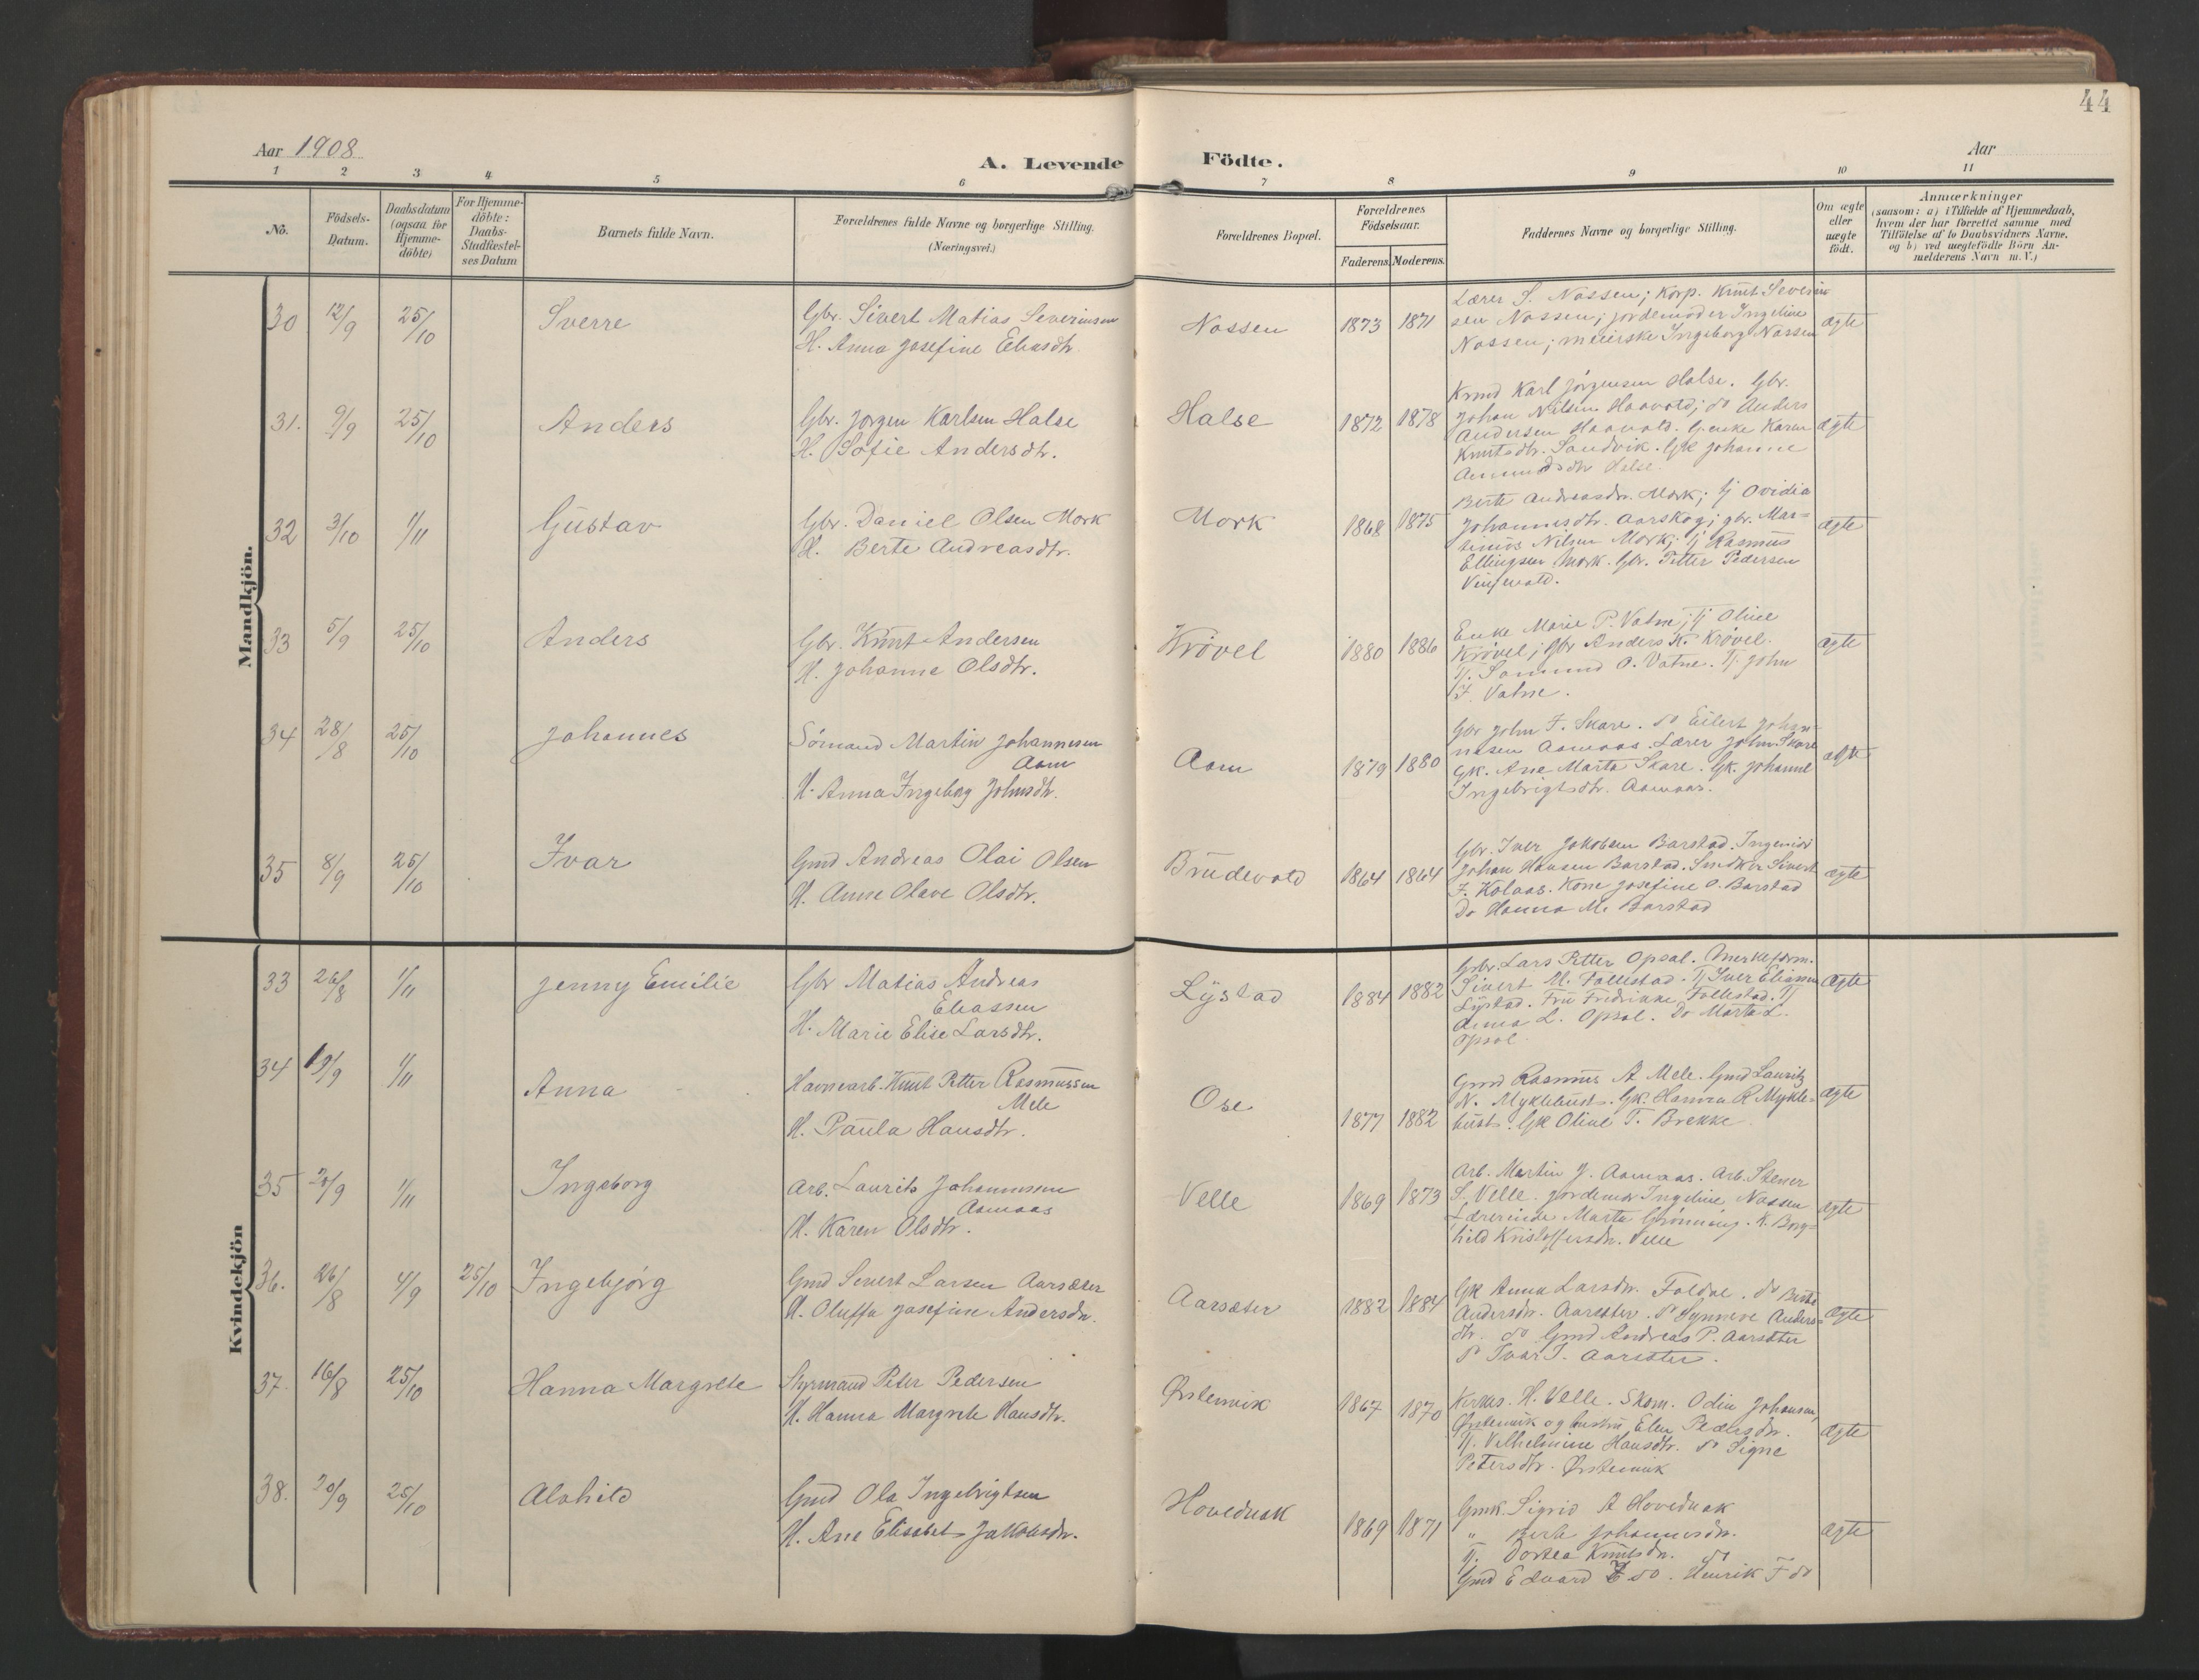 44
Aar 1908
A. Levende Födte.
Aar
1 2 3 4 5 6 7 8 9 10 11
No.
Födsels-
Datum.
Daabsdatum
(ogsaa for
Hjemme-
döbte)
For Hjemme-
döbte:
Daabs-
Stadfæstel-
ses Datum
Barnets fulde Navn.
Forældrenes fulde Navne og borgerlige Stilling.
(Næringsvei.)
Forældrenes Bopæl.
Forældrenes
Födselsaar.
Faderens. Moderens.
Faddernes Navne og borgerlige Stilling.
Om ægte
eller
uægte
födt.
Anmærkninger
(saasom: a) i Tilfælde af Hjemmedaab,
hvem der har forrettet samme med
Tilföielse af to Daabsvidners Navne,
og b) ved uægtefödte Börn An-
melderens Navn m. V.)
Mandkjön.
30 12/9 25/10 Sverre
Gbr. Sivert Matias Severinsen
H. Anna Josefine Eliasdtr.
Nossen 1873 1871
Lærer S. Nossen; Korp. Knut Severin
sen Nossen; jordemoder Ingeline
Nossen; meierske Ingeborg Nossen
ægte
31. 9/9 25/10 Anders
Gbr. Jørgen Karlsen Halse
H. Sofie Andersdtr.
Halse 1872 1878
Kmnd Karl Jørgensen Halse. Gbr.
Johan Nilsen Haavold; do Anders
Andersen Haavold. G.enke Karen
Knutsdtr. Sandvik. Gk Johanne
Amundsdtr Halse.
ægte
32 3/10 1/11 Gustav
Gbr. Daniel Olsen Mork
H. Berte Andreasdtr.
Mork 1868 1875
Berte Andreasdr. Mork; Tj Ovidia
Johannesdtr. Aarskog; gbr. Mar=
tinus Nilsen Mork; Tj Rasmus
Ellingsen Mork. Gbr. Petter Pedersen
ægte
33 5/9 25/10 Anders
Gbr. Knut Andersen
H. Johanne Olsdtr.
Krövel 1880 1886
Enke Marie P. Vatne; Tj Oline
Krövel; Gbr Anders K. Krövel.
Tj. Samund O. Vatne. Tj. John
J. Vatne.
ægte
34 28/8 25/10 Johannes
Sömand Martin Johannesen
Aam
H. Anna Ingeborg Johnsdtr.
Aam 1879 1880
Gbr John J. Skare. do Eilert Johan=
nesen Aamaas. Lærer John Skare
Gk. Ane Marta Skare. Gk. Johanne
Ingebrigtsdtr. Aamaas.
ægte
35 8/9 25/10 Ivar
Gmd Andreas Olai Olsen
H. Anne Olave Olsdtr.
Brudevold 1864 1864
Gbr. Iver Jakobsen Barstad. Ingeniör
Johan Hansen Barstad. Snedker Sivert
J. Kolaas. Kone Josefine O. Barstad
Do Hanna M. Barstad
ægte
Kvindekjön
33 26/8 1/11 Jenny Emilie
Gbr Matias Andreas
Eliassen
H. Marie Elise Larsdtr.
Lystad 1884 1882
Gbr. Lars Petter Opsal.
Sivert M. Follestad. Tj Iver Eliassen
Lystad. Fru Fredrikke Follestad. Tj
Anna L. Opsal. Do Marta L.
Opsal.
ægte
34 19/9 1/11 Anna
Havnearb. Knut Petter Rasmussen
Mele
H. Paula Hansdtr.
Ose 1877 1882
Gmd Rasmus A Mele. Gmd Lauritz
N. Myklebust. Gk. Hanna R Mykle=
bust. Gk Oline T. Brekke
ægte
35 20/9 1/11 Ingeborg
Arb. Laurits Johannessen
Aamaas
H. Karen Olsdtr.
Velle 1869 1873
Arb. Martin J. Aamaas. Arb. Stener
S. Velle. Jordemor Ingeline Nossen
Lærerinde Marta Grönning. K. Borg=
hild Kristoffersdr. Velle
ægte
36. 26/8 4/9 25/10 Ingebjörg
Gmd Sivert Larsen Aarsæter
H. Oluffa Josefine Andersdr.
Aarsæter 1882 1884
Gk Anna Larsdtr. Foldal. do Berte
Andersdr. Aarsæter. do Synneve Anders=
dtr. do Gmd Andreas P. Aarsæter
do Ivar J. Aarsæter.
ægte
37. 16/8 25/10 Hanna Margrete
Styrmand Peter Pedersen
H. Hanna Margrete Hansdtr.
Ørstenvik 1867 1870
Kirkes. H. Velle. Skom. Odin Johansen,
Ørstenvik og hustru Elen Pedersdr.
Tj. Vilhelmine Hansdtr. do Signe
Petersdtr. Ørstenvik
ægte
38. 20/9 25/10 Alvhild
Gmd Ola Ingebrigtsen
H. Ane Elisabet Jakobsdr.
Hovednak 1869 1871
Gmk. Sigrid A Hovednak
" Berte Johannesdr.
Tj. Dortea Knutsdr. do
Gmd Edvard do. Henrik F do
ægte